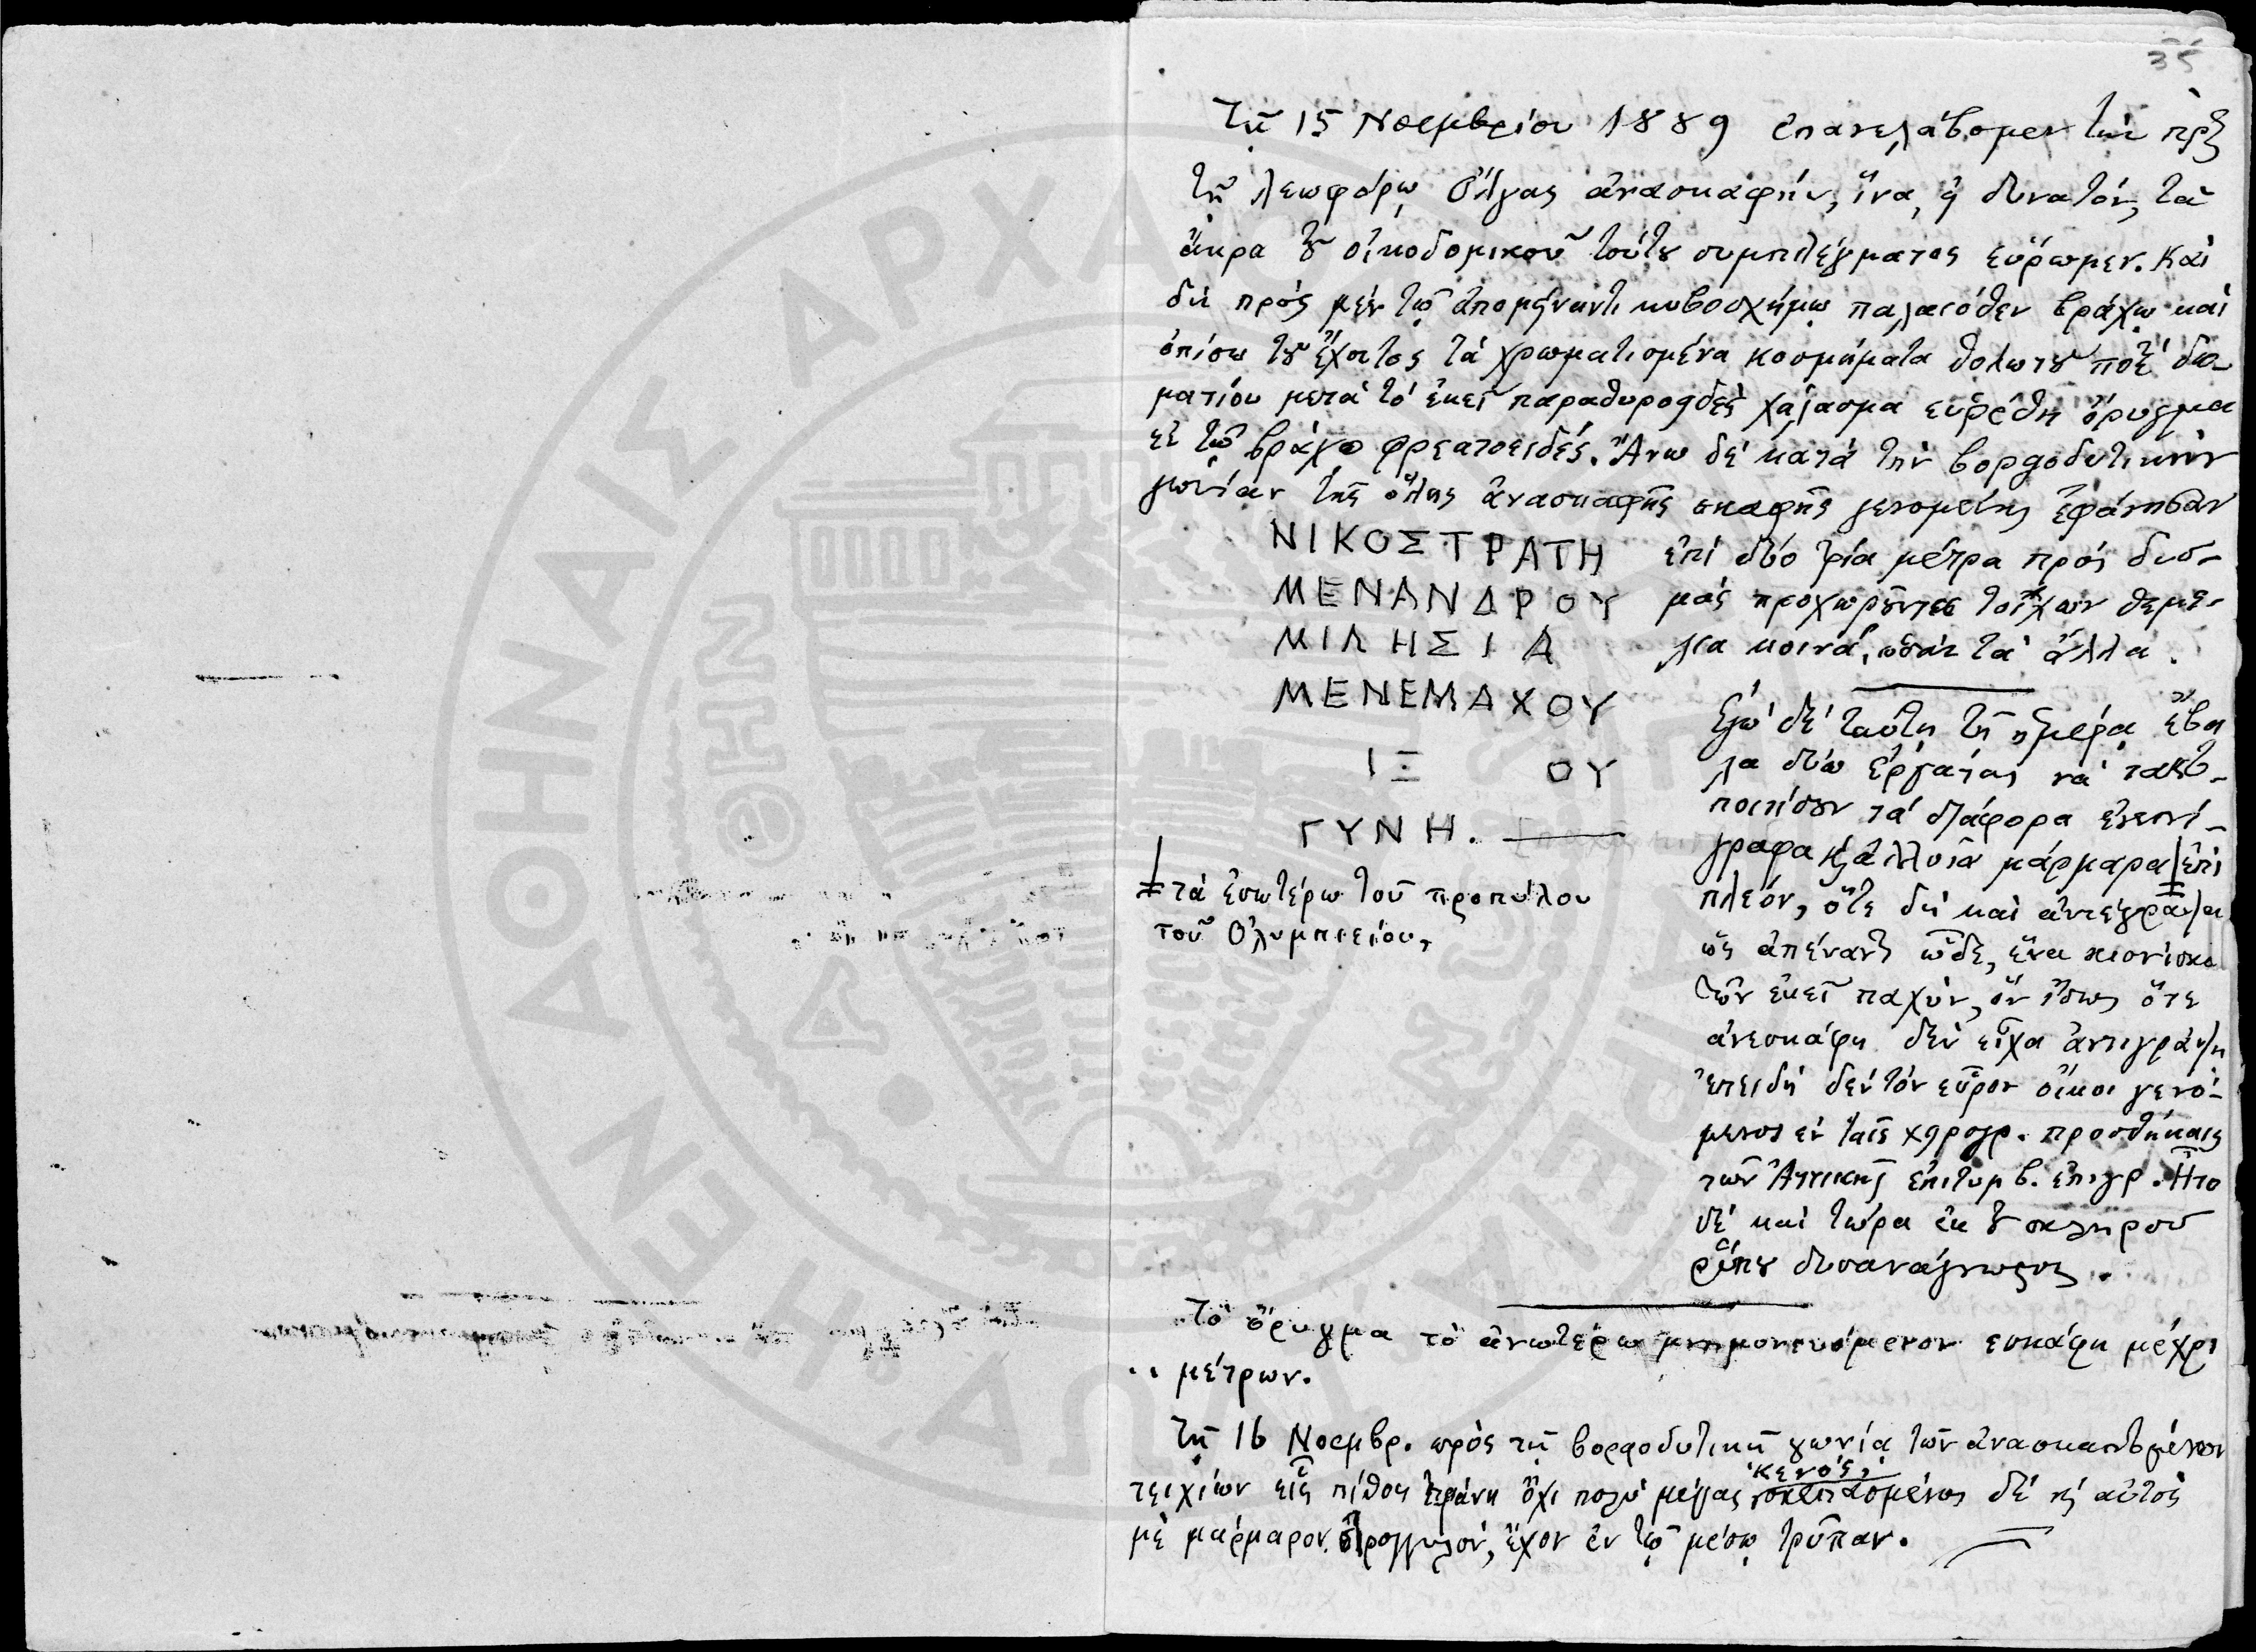 35
Τῇ 15 Νοεμβρίου 1889 ἐπανελάβομεν τὴν πρὸς
τῇ λεωφόρῳ Ὄλγας ἀνασκαφήν, ἵνα, εἰ δυνατόν, τὰ
ἄκρα τοῦ οἰκοδομικοῦ τούτου συμπλέγματος εὕρωμεν. Καὶ
δὴ πρὸς μὲν τῷ ἀπομείναντι κυβοσχήμῳ παλαιόθεν βράχῳ καὶ
ὀπίσω τοῦ ἔχοντος τὰ χρωματισμένα κοσμήματα θολωτοῦ ποτὲ δω-
ματίου μετὰ τὸ ἐκεῖ παραθυροειδὲς χάλασμα εὑρέθη ὄρυγμα
ἐν τῷ βράχῳ φρεατοειδές. Ἄνω δὲ κατὰ τὴν βορειοδυτικὴν
γωνίαν τῆς ὅλης ἀνασκαφῆς σκαφῆς γενομένης ἐφάνησαν
ΝΙΚΟΣΤΡΑΤΗ ἐπὶ δύο τρία μέτρα πρὸς δυσ-
ΜΕΝΑΝΔΡΟΥ μὰς προχωροῦντες τοίχων θεμέ-
ΜΙΛΗΣΙΑ λια κοινά, ὡσὰν τὰ ἄλλα.
ΜΕΝΕΜΑΧΟΥ
ΙΞ ΟΥ
ΓΥΝΗ.
Ἐγὼ δὲ ταύτῃ τῇ ἡμέρᾳ ἔβα
λα δύω ἐργάτας νὰ τακτο-
ποιήσουν τὰ διάφορα ἐνεπί-
γραφα καὶ ἀλλοῖα μάρμαρα ἐπὶ
πλεόν, ὅτε δὴ καὶ ἀντέγραψα
ὡς ἀπέναντι ὧδε, ἕνα κιονίσκο
τῶν ἐκεῖ παχύν, ὃν ἴσως ὅτε
ἀνεσκάφη δὲν εἶχα ἀντιγράψῃ
ἐπειδὴ δὲν τὸν εὗρον οἴκοι γενό-
μενος ἐν ταῖς χειρογρ. προσθήκαις
τῶν Ἀττικῆς ἐπιτυμβ. ἐπιγρ. Ἦτο
δὲ καὶ τώρα ἐκ τοῦ σκληροῦ
ῥύπου δυσανάγνωστος.
τὰ ἐσωτέρω τοῦ προπύλου
τοῦ Ὀλυμπιείου,
Τὸ ὄρυγμα τὸ ἀνωτέρω μνημονευόμενον ἐσκάφη μέχρι
.. μέτρων.
Τῇ 16 Νοεμβρ. πρὸς τῇ βορειοδυτικῇ γωνίᾳ τῶν ἀνασκαπτομένων
κενός,
τειχίων εἷς πίθος ἐφάνη ὄχι πολὺ μέγας σκεπασμένος δὲ καὶ αὐτὸς
μὲ μάρμαρον στρογγυλόν, ἔχον ἐν τῷ μέσῳ τρῦπαν.